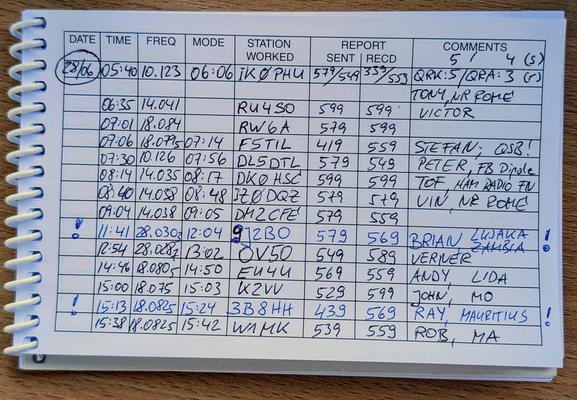 DATE TIME FREQ MODE STATION WORKED REPORT SENT RECD COMMENTS
5 / 4 (s)
28/06 05:40 10.123 06:06 IKØPHU 579/549 339/553 QRK:5/QRA:3 (r)
TONY, NR ROME
06:35 14.041 RU4SO 599 599 VICTOR
07:01 18.084 RW6A 579 599
07:06 18.0795 07:14 F5TIL 419 559 STEFAN; QSB!
07:30 10.126 07:56 DL5DTL 579 549 PETER, FB Dipole
08:14 14.035 08:17 DKØHSC 599 599 TOF, HAM RADIO FN
08:40 14.038 08:48 IZØDQZ 579 579 VIN, NR ROME
09:04 14.038 09:05 DM2CFE 579 559
! 11:41 28.0302 12:04 9J2BO 579 569 BRIAN LUSAKA ZAMBIA !
12:54 28.0282 13:02 OV5O 549 589 VERNER
14:46 18.0805 14:50 EU4U 569 559 ANDY, LIDA
15:00 18.075 15:03 K2VV 529 599 JOHN, MO
! 15:13 18.0825 15:24 3B8HH 439 569 RAY, MAURITIUS !
15:38 18.0825 15:42 W1MK 539 559 ROB, MA